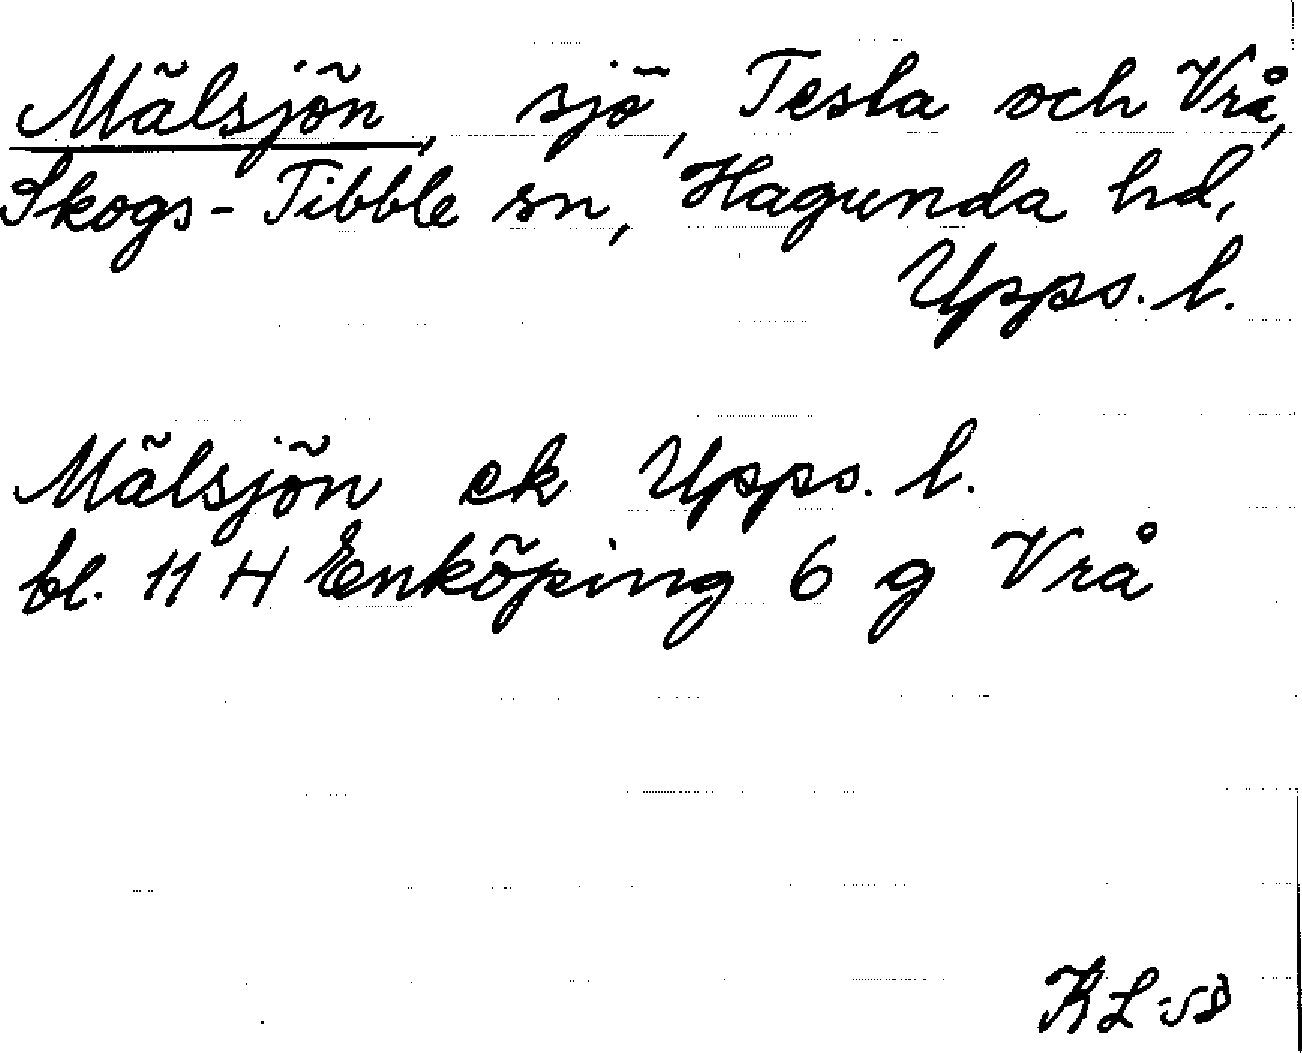 Mälsjön, sjö, Tesla och Vrå,
Skogs-Tibble sn, Hagunda hd,
Upps. l.
Mälsjön ek Upps. l.
bl. 11 H Enköping 6 g Vrå